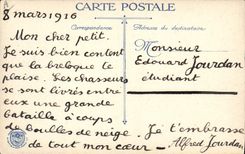 8 mars 1916
CARTE POSTALE
Correspondance
Adresse du destinataire
Mon cher petit.
Je suis bien content
que la breloque te
plaise. Les chasseurs
se sont livrés entre
eux une grande
bataille à coups
de boulles de neige.
Je t'embrasse
de tout mon cœur _
Alfred Jourdan
Monsieur
Edouard Jourdan
étudiant